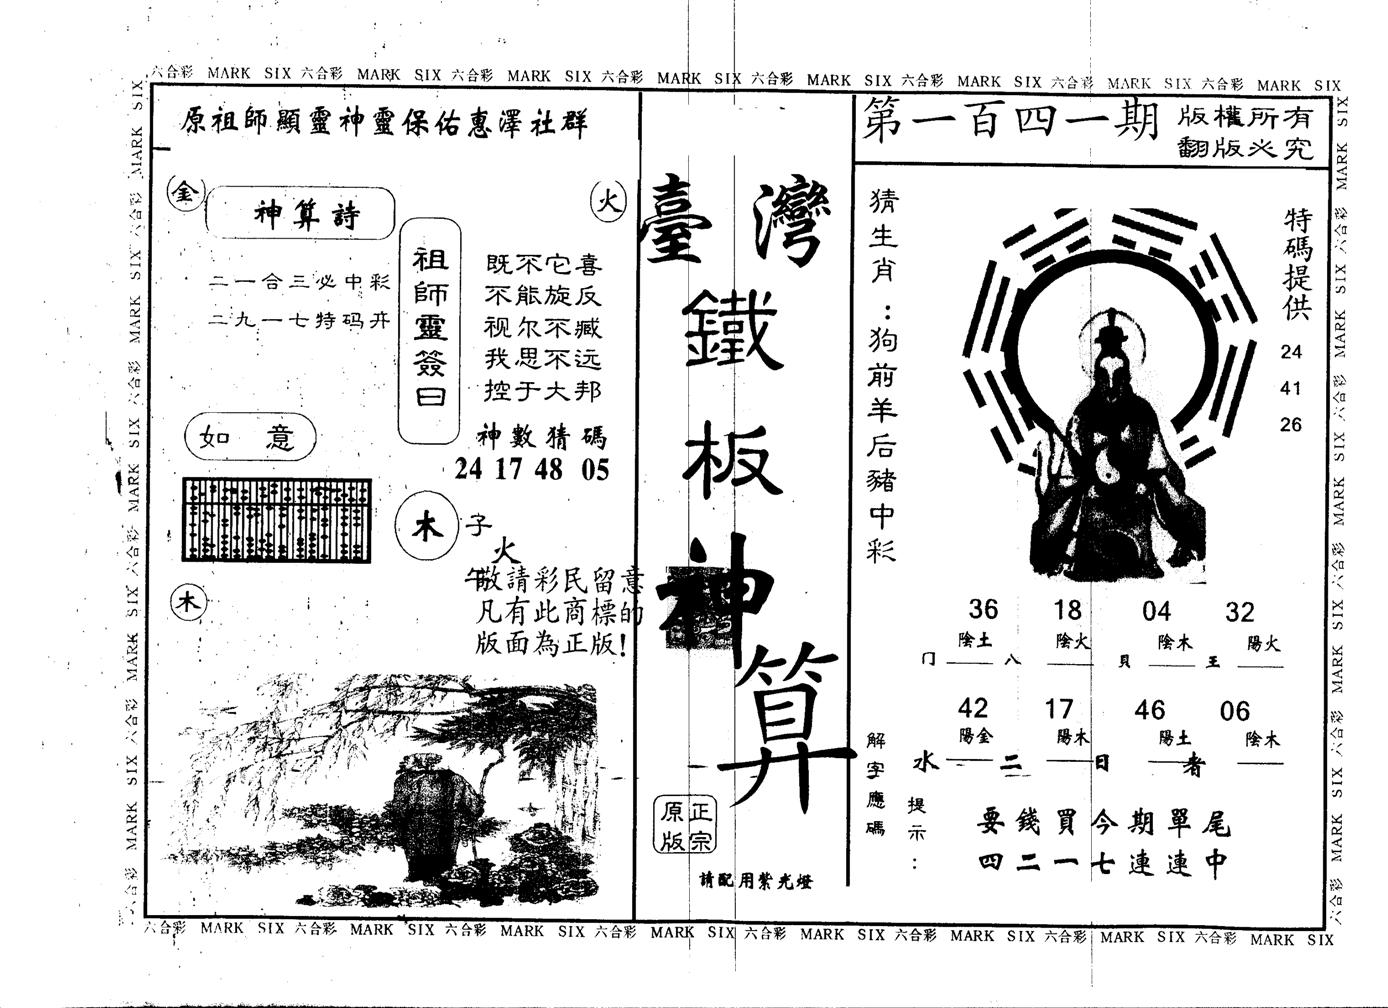 六合彩 MARK SIX 六合彩 MARK SIX 六合彩 MARK SIX 六合彩 MARK SIX 六合彩 MARK SIX 六合彩 MARK SIX 六合彩 MARK SIX 六合彩 MARK SIX
原祖師顯靈神靈保佑惠澤社群
金
神算詩
二一合三必中彩
二九一七特码开
祖師靈簽曰
火
既不它喜
不能旋反
视尔不臧
我思不远
控于大邦
神數猜碼
24 17 48 05
如意
木
子
火
午
木
敬請彩民留意
凡有此商標的
版面為正版!
臺灣
鐵
板
神
算
正宗
原版
請配用紫光燈
第一百四一期
版權所有
翻版必究
猜生肖:狗前羊后豬中彩
特碼提供
24
41
26
36 18 04 32
陰土 陰火 陰木 陽火
门 八 貝 王
42 17 46 06
陽金 陽木 陽土 陰木
水 二 日 者
解字應碼
提示:
要錢買今期單尾
四二一七連連中
六合彩 MARK SIX 六合彩 MARK SIX 六合彩 MARK SIX 六合彩 MARK SIX 六合彩 MARK SIX 六合彩 MARK SIX 六合彩 MARK SIX 六合彩 MARK SIX